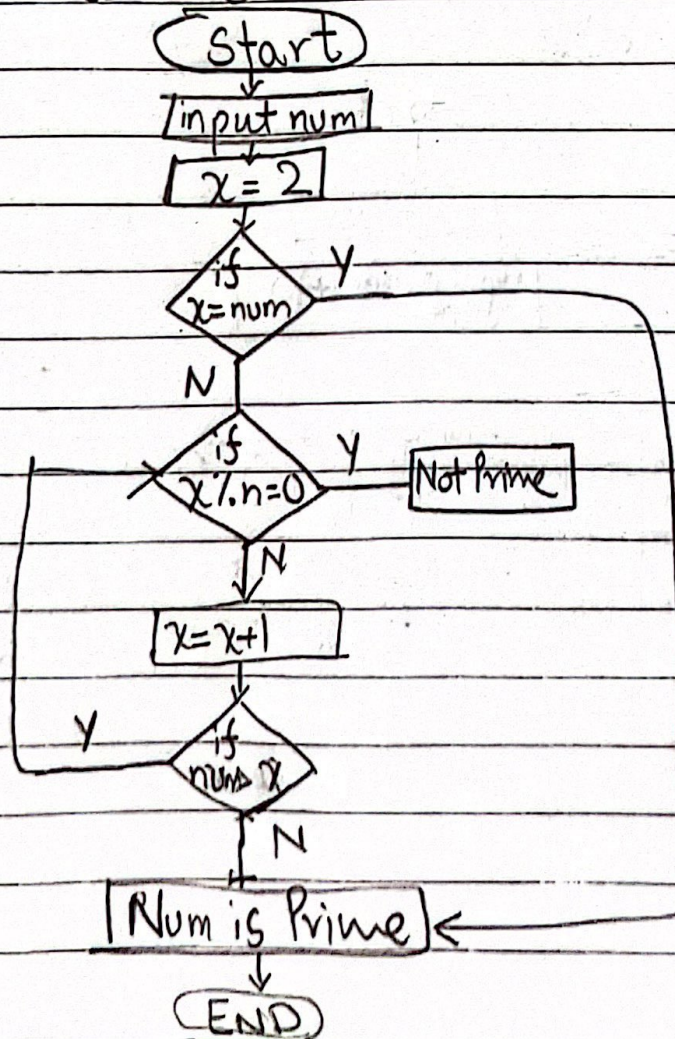 Start
input num
x = 2
if
x=num
Y
N
if
x%n=0
Y
Not Prime
N
x=x+1
Y
if
num> x
N
Num is Prime
END